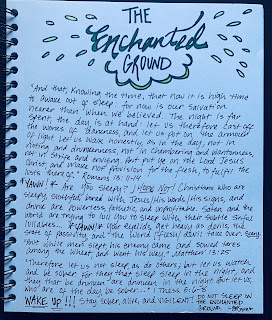 THE
Enchanted
GROUND
"And that, knowing the time, that now it is high time
to awake out of sleep: for now is our salvation
nearer than when we believed. The night is far
spent, the day is at hand: let us therefore cast off
the works of darkness, and let us put on the armour
of light. Let us walk honestly, as in the day; not in
rioting and drunkenness, not in chambering and wantonness,
not in strife and envying. But put ye on the Lord Jesus
Christ, and make not provision for the flesh, to fulfil the
lusts thereof." Romans 13:11-14
*YAWN!* Are you sleepy? I HOPE NOT! Christians who are
sleepy, bored with Jesus, His words, His signs, and
are and unprofitable. Satan and the
world are trying to lull you to sleep with their subtle sinful
lullabies... *YAWN!* Your eyelids get heavy as the
state of passivity and "the world (flesh) devil take over.
"But while men slept, his enemy came and sowed tares
among the wheat, and went his way." Matthew 13:25
"Therefore let us not sleep, as do others; but let us watch
and be sober. For they that sleep sleep in the night; and
they that be drunken are drunken in the night. But let us,
who are of the day, be sober..." 1 Thess. 5:6-8
WAKE UP!!! Stay sober, alive, and VIGILENT! DO NOT SLEEP IN
THE ENCHANTED
GROUND.